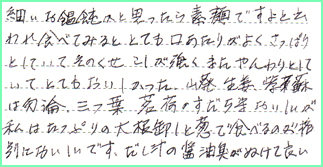 細いお饂飩かと思ったら素麺ですよと云
われ食べてみると、とても口あたりがよく、さっぱり
としていてそのくせこしが強く、またやんわりとして
いて、とてもおいしかった。山葵 生姜 紫蘇
は勿論、三つ葉 茗荷 すだち等おいしいが
私はたっぷりの大根卸しと葱で食べるのが格
別においしいです。だし汁の醤油臭がぬけて良い